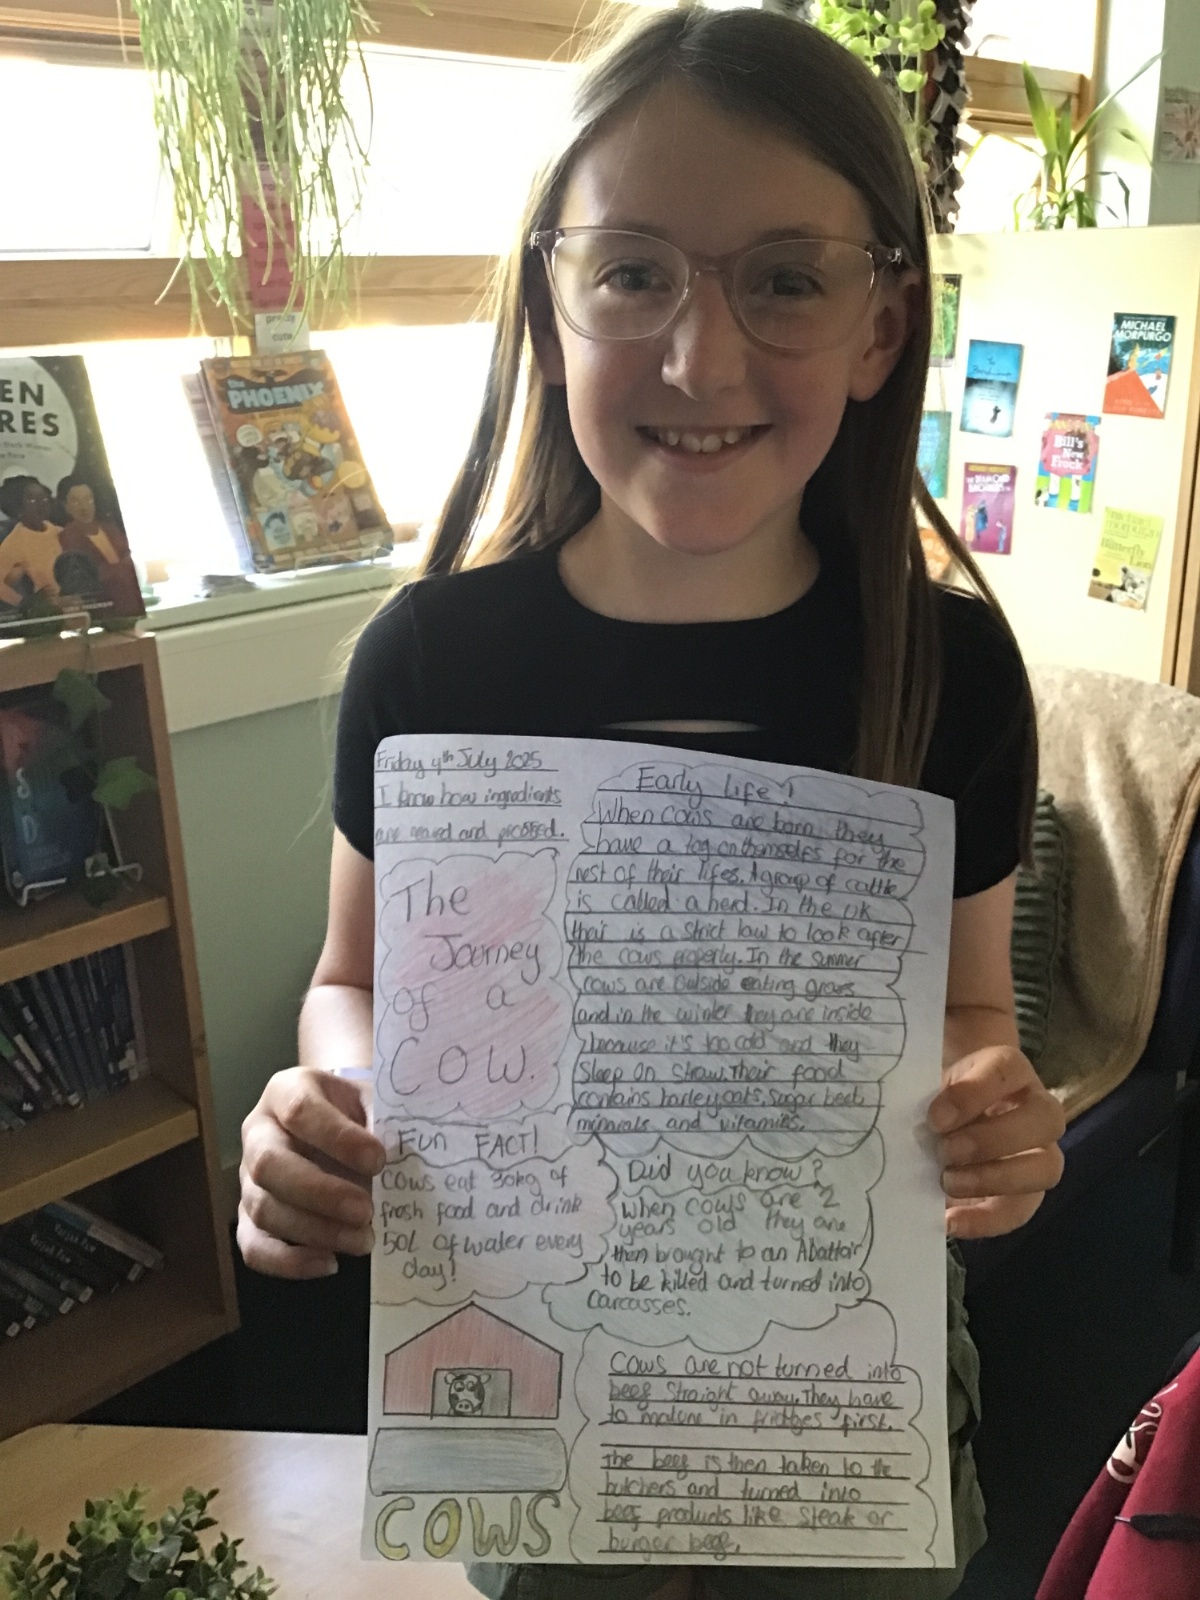 Friday 4th July 2025
I know how ingredients
are reared and
The
Journey
of a
COW.
Fun FACT!
Cows eat 30kg of
fresh food and drink
50L of water every
day!
COWS
Early life!
When cows are born they
have a tag on themselfs for the
rest of their lifes. A group of cattle
is called a herd. In the UK
their is a strict law to look after
the cows properly. In the summer
cows are outside eating grass
and in the winter they are inside
because it's too cold and they
sleep on straw. Their food
contains barley, oats, sugar beet
minerals and vitamins.
Did you know?
When cows are 2
years old they are
then brought to an Abattoir
to be killed and turned into
Carcasses.
Cows are not turned into
beef straight away. They have
to mature in fridges first.
The beef is then taken to the
butchers and turned into
beef products like steak or
burger beef.
The
PHOENIX
EN
RES
pretty
cute
MICHAEL
MORPURGO
Bill's
New
Frock
Butterfly
Lion